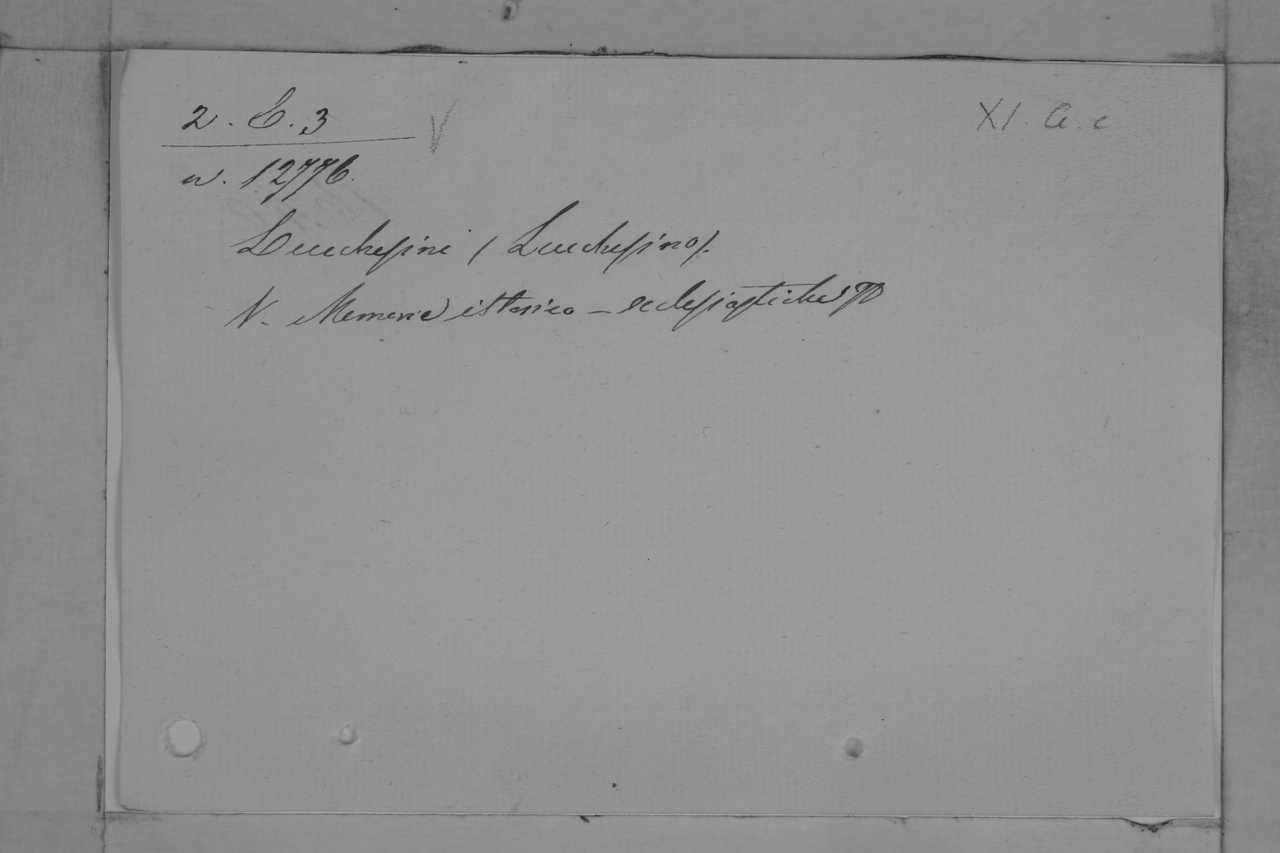 2. E. 3
XI. a. c
n. 12776.
Lucchesini (Lucchesino).
V. Memorie istorico - ecclesiastiche